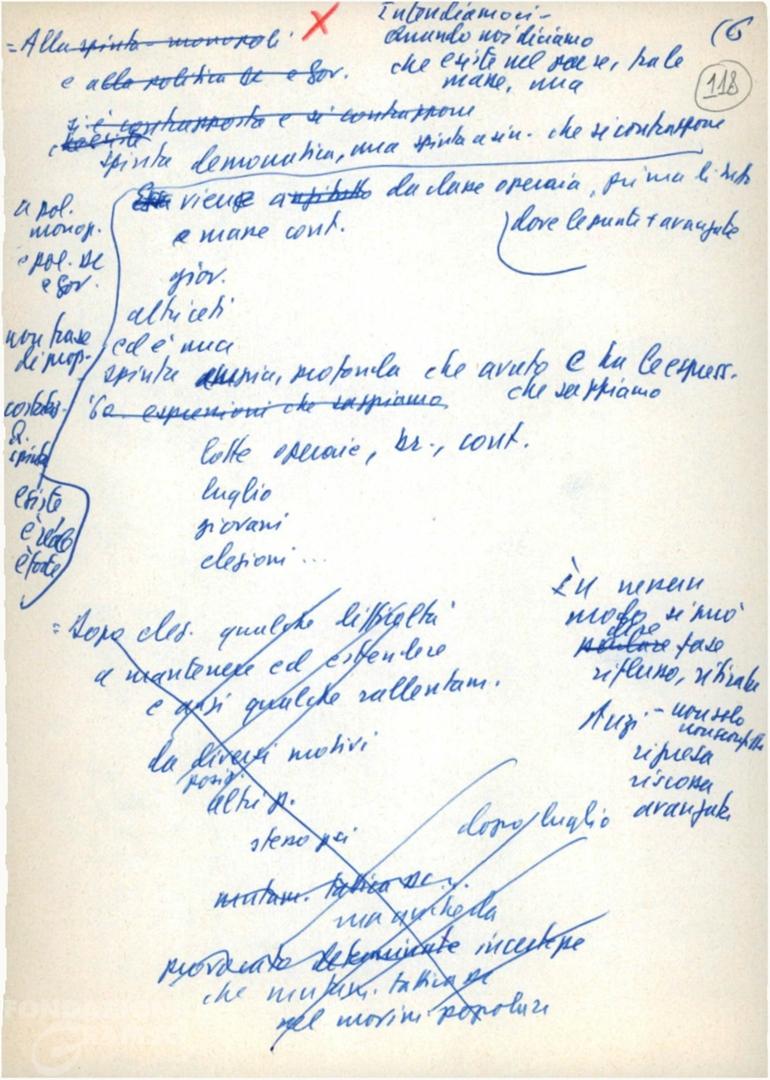 Intendiamoci -
16
118
= Alla spinta - monopoli
quando noi diciamo
e alla politica DC e gov.
che esiste nel paese, tra le
masse, una
si è contrapposta e si contrappone
spinta democratica, una spinta a sin. che si contrappone
a pol.
monop.
e pol. DC
e gov.
Essa viene da classe operaia, prima di tutto
dove le punte + avanzate
e masse cont.
giov.
altri ceti
non frase
di prop.
ed è una
spinta ampia, profonda che avuto e ha le espress.
che sappiamo
espressioni che sappiamo
spinta
esiste
è reale
è forte
lotte operaie, br., cont.
luglio
giovani
elezioni ...
In nessun
modo si può
dire
parlare fase
riflusso, ritirata
Anzi - non solo
ripresa
riscossa
avanzata
= Dopo elez. qualche difficoltà
a mantenere ed estendere
e anzi qualche rallentam.
da diversi motivi
posiz.
altri p.
stesso psi
dopo luglio
mutam. tattica DC
ma anche da
provocato determinate incertezze
che mutam. tattica DC
nel movim popolare